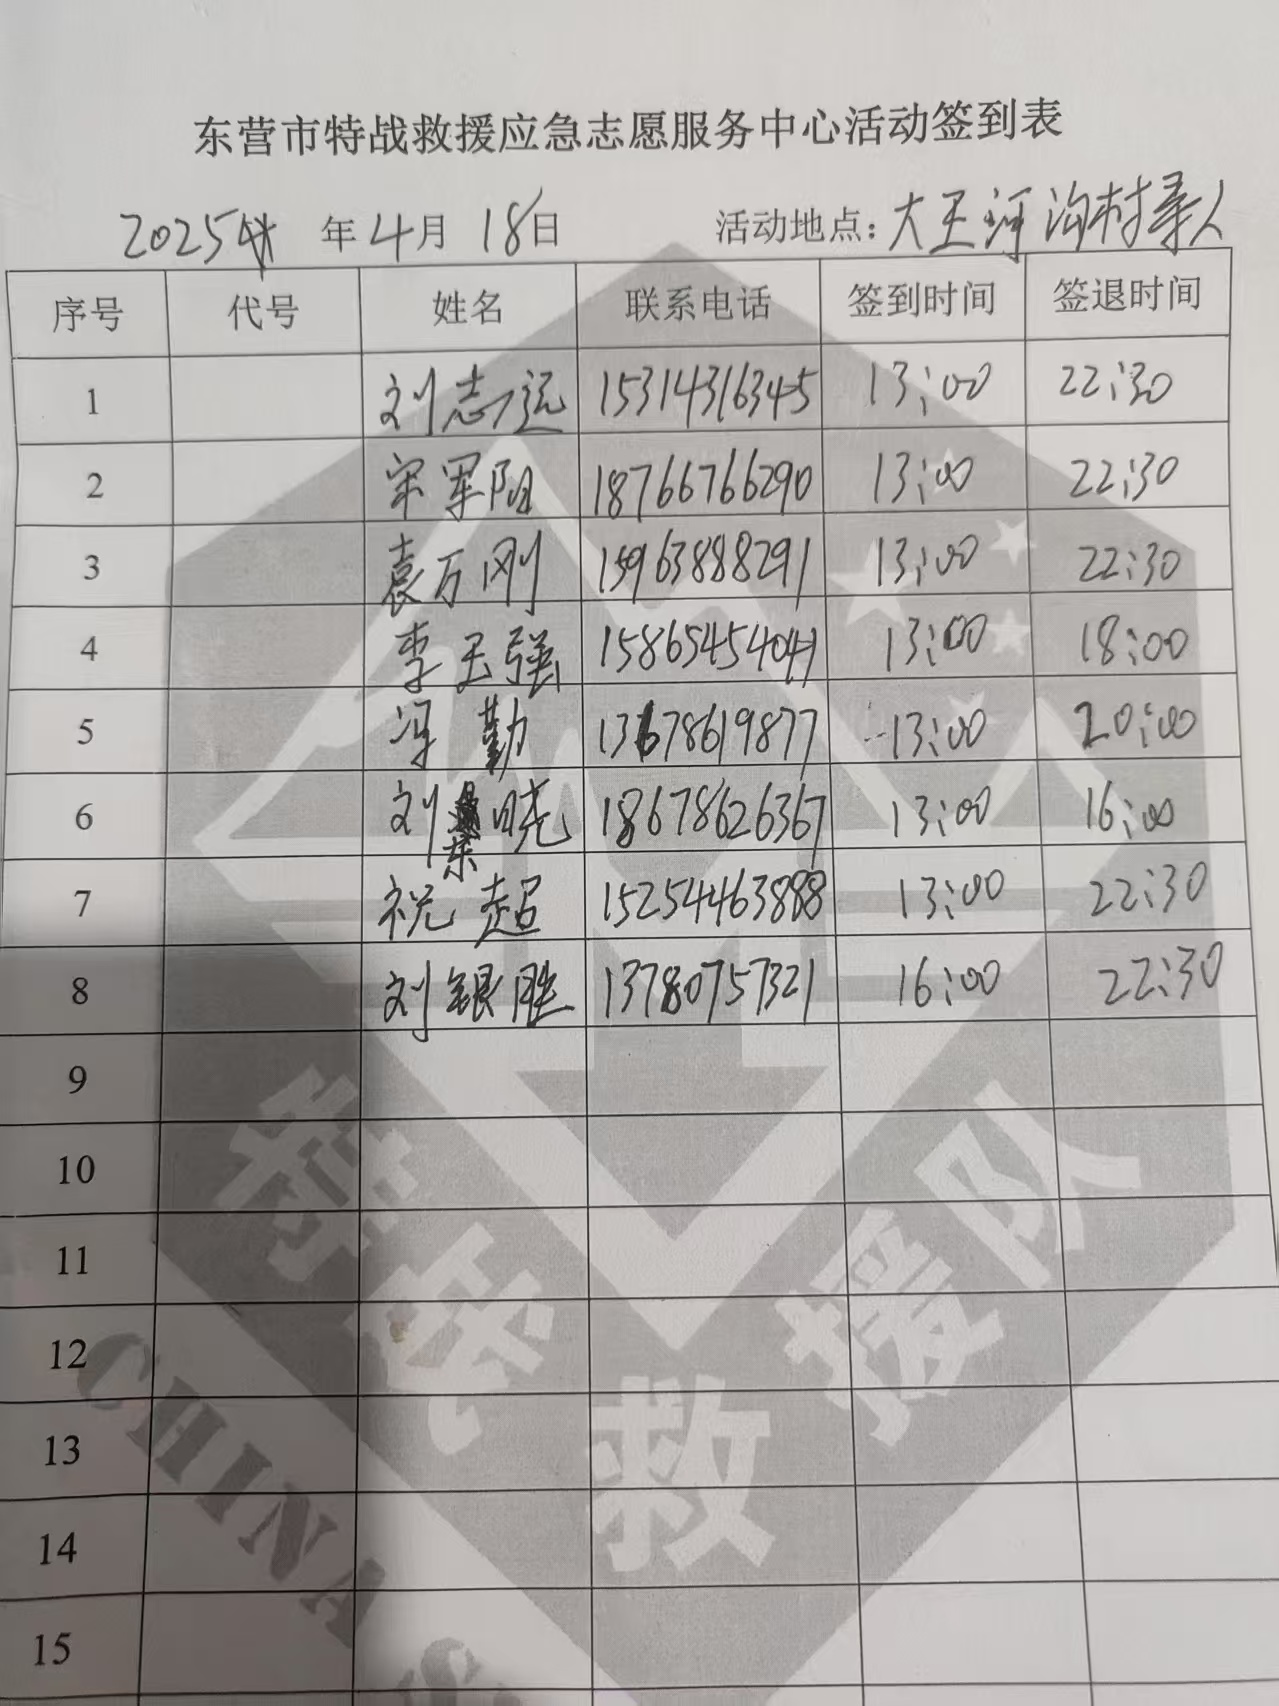 东营市特战救援应急志愿服务中心活动签到表
2025 年 4月 18日 活动地点：大王河沟村寻人
序号 代号 姓名 联系电话 签到时间 签退时间
1 刘志远 15314316345 13:00 22:30
2 宋军阳 18766766290 13:00 22:30
3 袁万刚 15963888291 13:00 22:30
4 李玉强 15865454041 13:00 18:00
5 冯勤 13678619877 13:00 20:00
6 刘东晓 18678626367 13:00 16:00
7 祝超 15254463888 13:00 22:30
8 刘银胜 13780757321 16:00 22:30
9
10
11
12
13
14
15
特战救援队
CHINA S